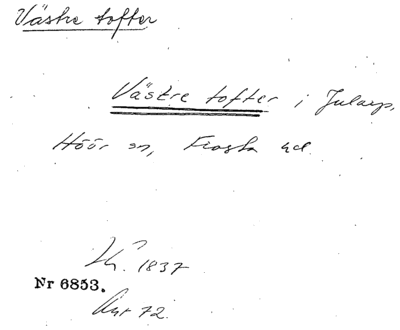 Västre tofter
Västre tofter i Jularp,
Höör sn, Frosta hd.
1837
Nr 6853.
72.